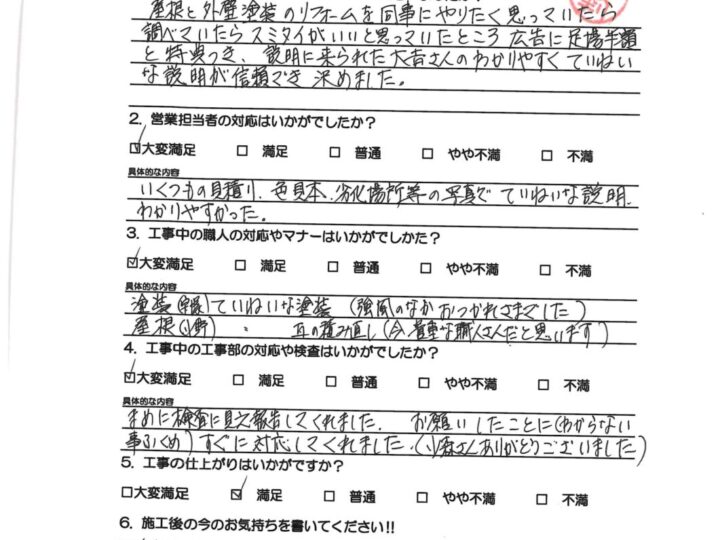 屋根と外壁塗装のリフォームを同事にやりたく思っていたら
調べていたらスミタイがいいと思っていたところ広告に足場半額
と特典つき、説明に来られた大吉さんのわかりやすくていねい
な説明が信頼でき決めました。
2. 営業担当者の対応はいかがでしたか？
☑大変満足 □ 満足 □ 普通 □ やや不満 □ 不満
具体的な内容
いくつもの見積り、色見本、劣化場所等の写真でていねいな説明、
わかりやすかった。
3. 工事中の職人の対応やマナーはいかがでしかた？
☑大変満足 □ 満足 □ 普通 □ やや不満 □ 不満
具体的な内容
塗装 ていねいな塗装（強風のなかおつかれさまでした）
屋根(小野) 〃 瓦の積み直し（今、貴重な職人さんだと思います）
4. 工事中の工事部の対応や検査はいかがでしたか？
☑大変満足 □ 満足 □ 普通 □ やや不満 □ 不満
具体的な内容
まめに検査に見え報告してくれました. お願いしたことに(わからない
事ふくめ)すぐに対応してくれました.(小森さんありがとうございました)
5. 工事の仕上がりはいかがですか？
□大変満足 ☑ 満足 □ 普通 □ やや不満 □ 不満
6. 施工後の今のお気持ちを書いてください!!